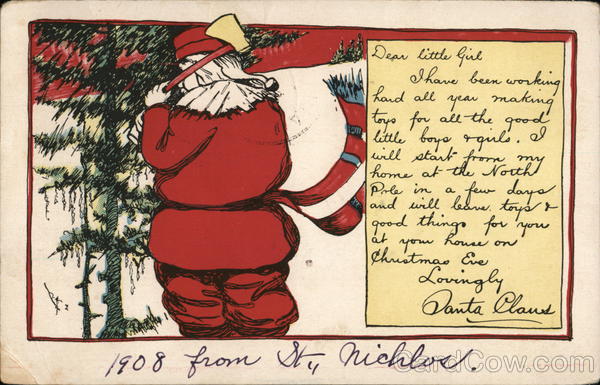 Dear little Girl
I have been working
hard all year making
toys for all the good
little boys & girls. I
will start from my
home at the North
Pole in a few days
and will leave toys &
good things for you
at your house on
Christmas Eve
Lovingly
Santa Claus
1908 from St,, Nichlos.
CardCow.com